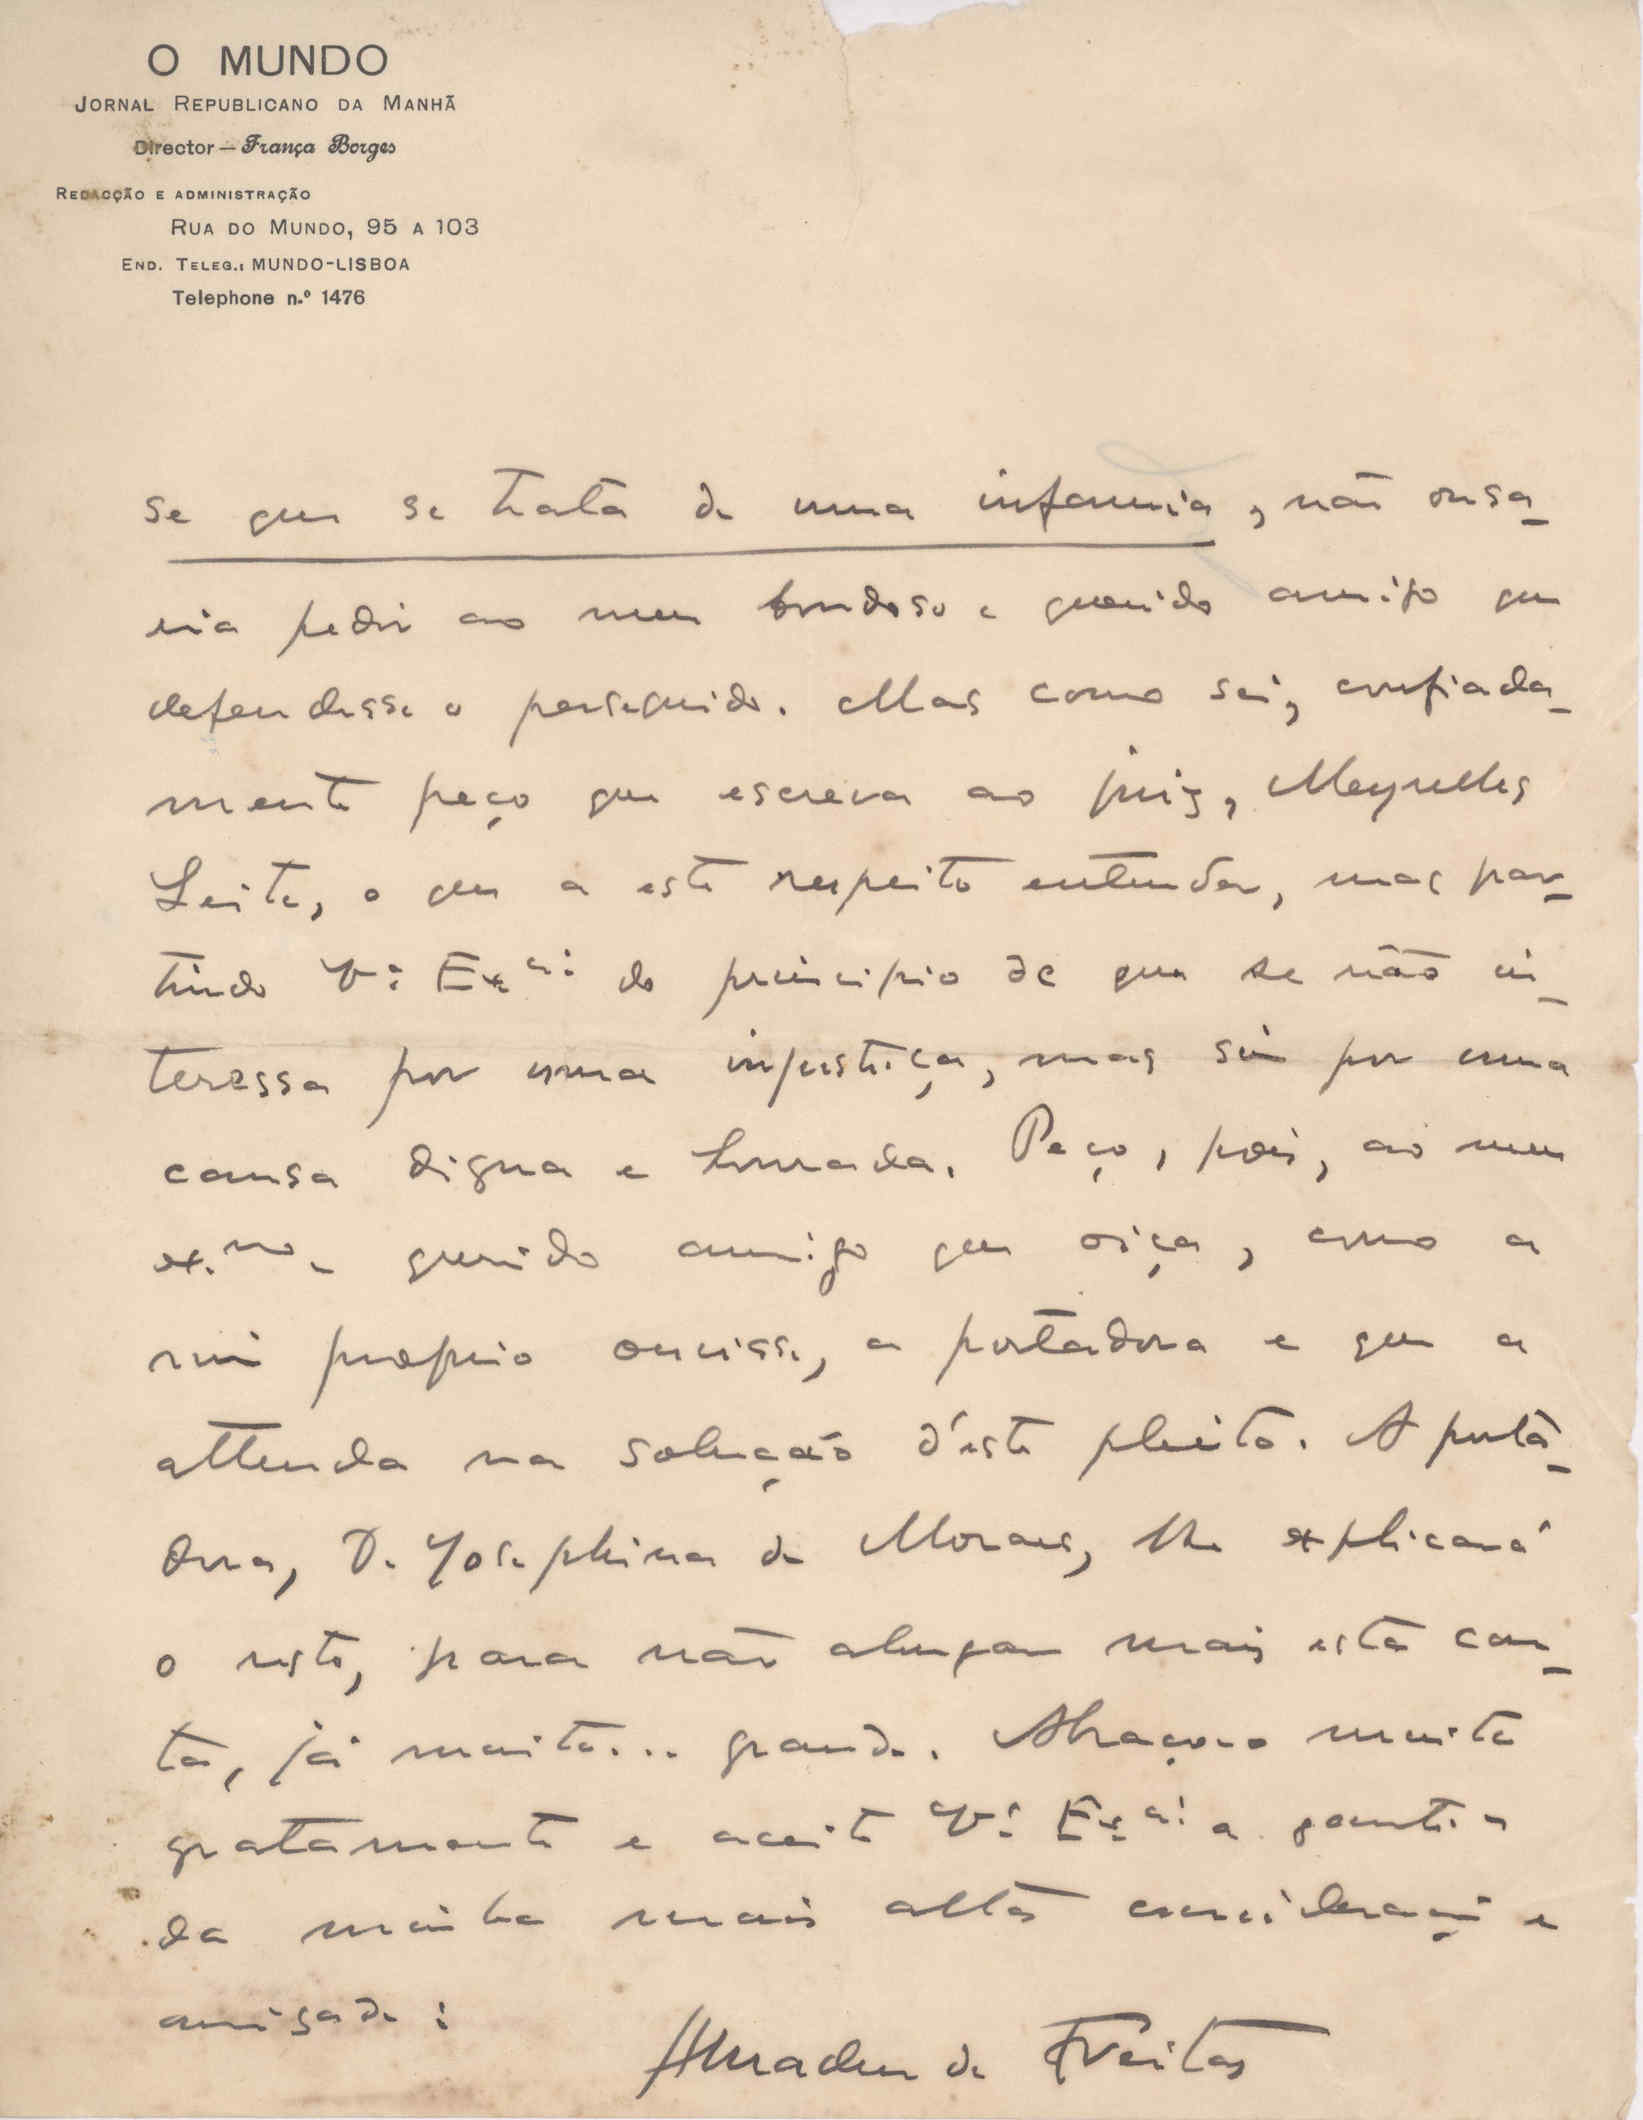 O MUNDO
JORNAL REPUBLICANO DA MANHÃ
Director — França Borges
REDACÇÃO E ADMINISTRAÇÃO
RUA DO MUNDO, 95 A 103
END. TELEG.: MUNDO-LISBOA
Telephone n.º 1476
se que se trata de uma infamia, não ousa-
ria pedir ao meu bondoso e querido amigo que
defendesse o perseguido. Mas como sei, confiada-
mente peço que escreva ao juiz, Meyrelles
Leite, o que a este respeito entender, mas par-
tindo V.ª Ex.cia do principio de que se não in-
teressa por uma injustiça, mas sim por uma
causa digna e honrada. Peço, pois, ao meu
ex.mo e querido amigo que oiça, como a
mim proprio ouvisse, a portadora e que a
attenda na solução d'este pleito. A porta-
dora, D. Josephina de Moraes, lhe explicará
o resto, para não alongar mais esta car-
ta, já muito... grande. Abraço-o muito
gratamente e aceite V.ª Ex.cia a garantia
da minha mais alta consideração e
amisade:
Amadeu de Freitas